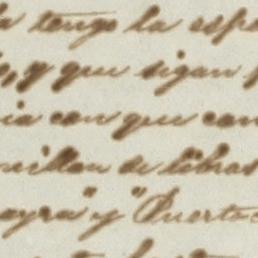 a tengo la espe
o, y que sigan p
ia con que con
millon de libras
ayra" y "Puerto